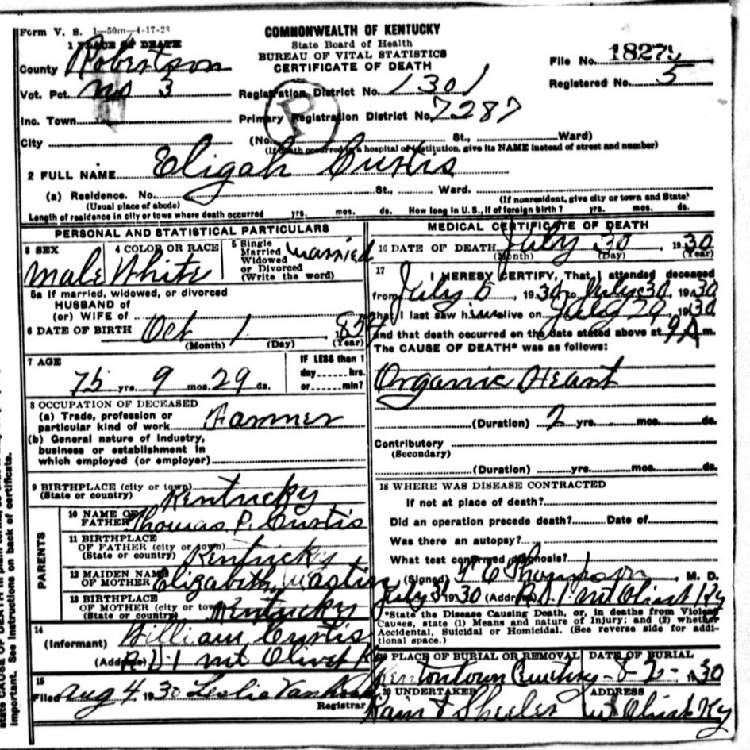 Form V. S. 1—50m—4-17-28
COMMONWEALTH OF KENTUCKY
State Board of Health
BUREAU OF VITAL STATISTICS
CERTIFICATE OF DEATH
1 PLACE OF DEATH
County Robertson
Vot. Pct. No 3
Inc. Town
City
Registration District No. 1301
Primary Registration District No. 7287
P
File No. 1827
Registered No. 5
(No. St., Ward)
(If death occurred in a hospital or institution, give its NAME instead of street and number)
2 FULL NAME Eligah Custis
(a) Residence. No. St., Ward.
(Usual place of abode) (If nonresident, give city or town and State)
Length of residence in city or town where death occurred yrs. mos. ds. How long in U.S., if of foreign birth? yrs. mos. ds.
PERSONAL AND STATISTICAL PARTICULARS
3 SEX Male
4 COLOR OR RACE White
5 Single Married Widowed or Divorced (Write the word) Married
5a If married, widowed, or divorced
HUSBAND of
(or) WIFE of
6 DATE OF BIRTH Oct 1 1854
(Month) (Day) (Year)
7 AGE
75 yrs. 9 mos. 29 ds.
IF LESS than 1
day hrs.
or min?
8 OCCUPATION OF DECEASED
(a) Trade, profession or
particular kind of work Farmer
(b) General nature of industry,
business or establishment in
which employed (or employer)
9 BIRTHPLACE (city or town)
(State or country) Kentucky
PARENTS
10 NAME OF
FATHER Thomas P. Custis
11 BIRTHPLACE
OF FATHER (city or town)
(State or country) Kentucky
12 MAIDEN NAME
OF MOTHER Elizabeth Mastin
13 BIRTHPLACE
OF MOTHER (city or town)
(State or country) Kentucky
14
(Informant) William Custis
(Address) R.D.1 Mt Olivet Ky
15
Filed Aug 4, 1930 Leslie
Registrar
MEDICAL CERTIFICATE OF DEATH
16 DATE OF DEATH July 30 1930
(Month) (Day) (Year)
17 I HEREBY CERTIFY, That I attended deceased
from July 5, 1930 to July 30, 1930
that I last saw him alive on July 29, 1930
and that death occurred on the date stated above at 9 A.m.
The CAUSE OF DEATH* was as follows:
Organic Heart
(Duration) 2 yrs. mos. ds.
Contributory
(Secondary)
(Duration) yrs. mos. ds.
18 WHERE WAS DISEASE CONTRACTED
If not at place of death?
Did an operation precede death? Date of
Was there an autopsy?
What test confirmed diagnosis?
(Signed) Thompson M. D.
July 31, 1930 (Address) Mt Olivet Ky
*State the Disease Causing Death, or, in deaths from Violent
Causes, state (1) Means and nature of Injury; and (2) whether
Accidental, Suicidal or Homicidal. (See reverse side for addi-
tional space.)
19 PLACE OF BURIAL OR REMOVAL
Kentontown Cemetery
DATE OF BURIAL
8-2-30
20 UNDERTAKER
Rain & Sheeler
ADDRESS
Mt Olivet Ky
state CAUSE OF DEATH
important. See instructions on back of certificate.